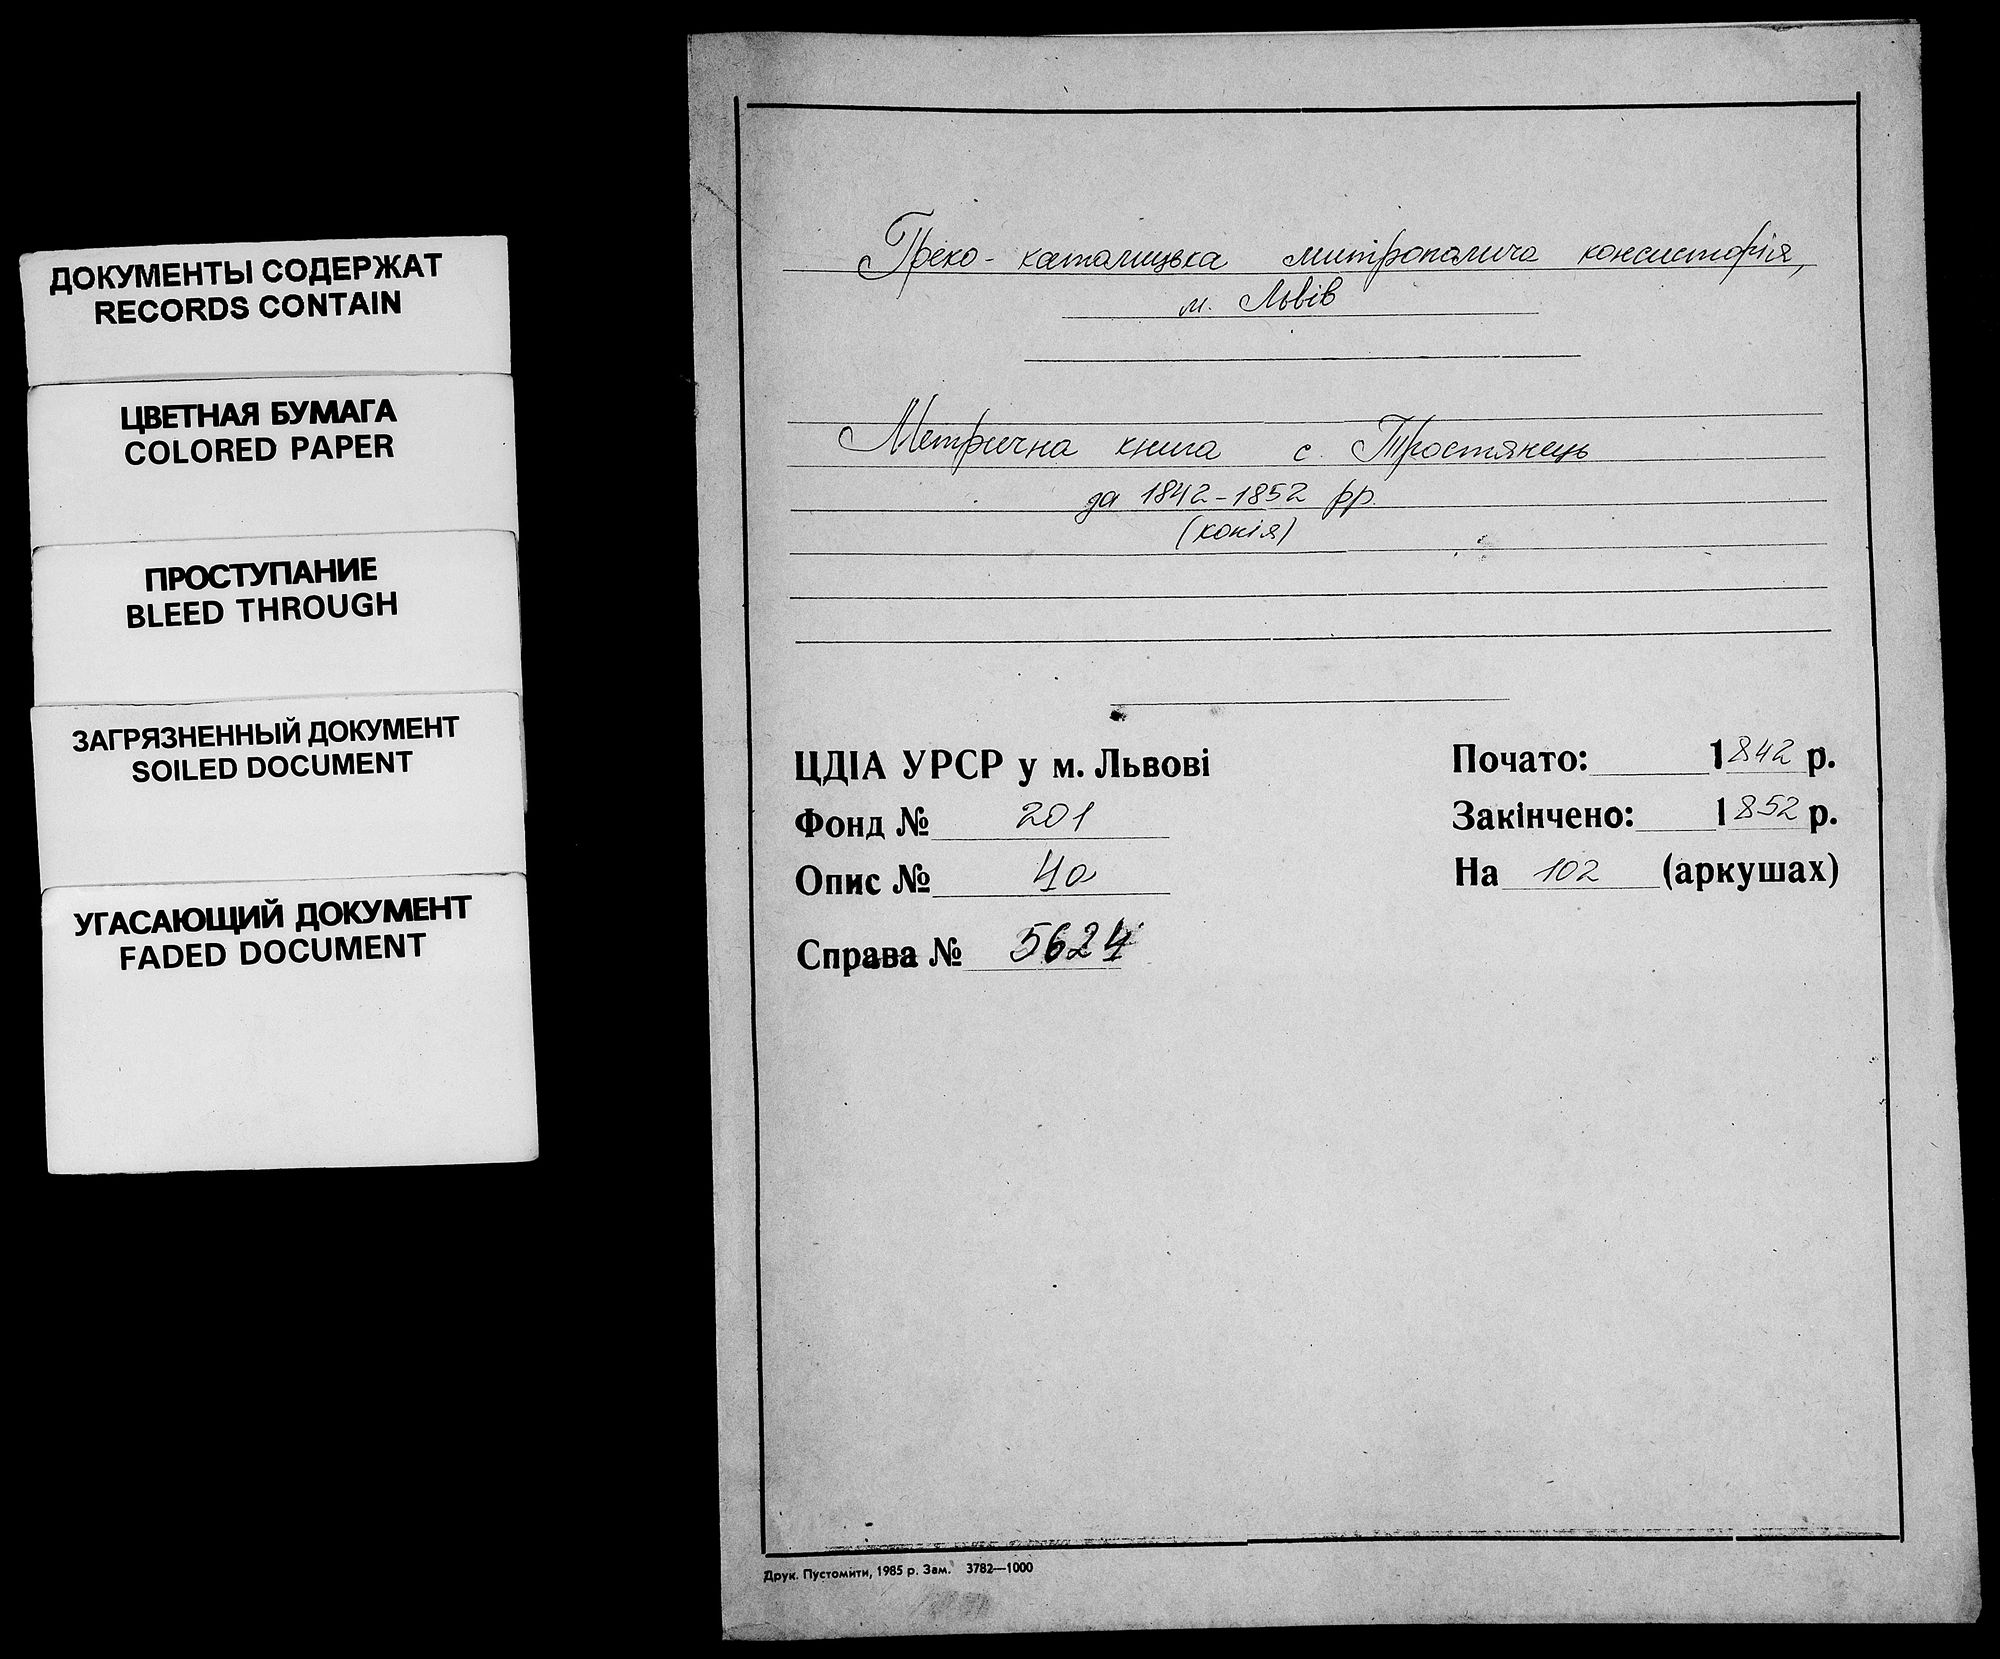 ДОКУМЕНТЫ СОДЕРЖАТ
RECORDS CONTAIN
ЦВЕТНАЯ БУМАГА
COLORED PAPER
ПРОСТУПАНИЕ
BLEED THROUGH
ЗАГРЯЗНЕННЫЙ ДОКУМЕНТ
SOILED DOCUMENT
УГАСАЮЩИЙ ДОКУМЕНТ
FADED DOCUMENT
Греко-католицька митрополича консисторія,
м. Львів
Метрична книга с. Тростянець
за 1842-1852 рр.
(копія)
ЦДІА УРСР у м. Львові
Фонд № 201
Опис № 4а
Справа № 5624
Почато: 1842 р.
Закінчено: 1852 р.
На 102 (аркушах)
Друк. Пустомити, 1985 р. Зам. 3782—1000